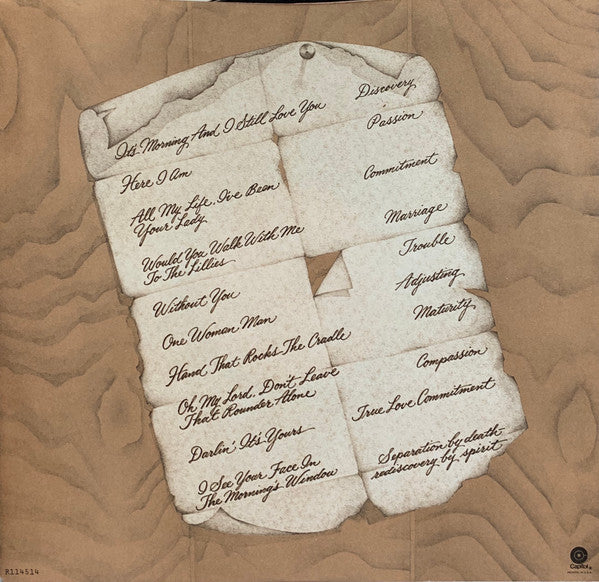 It's Morning And I Still Love You Discovery
Here I Am Passion
All My Life, I've Been
Your Lady Commitment
Would You Walk With Me
To The Lillies Marriage
Without You Trouble
One Woman Man Adjusting
Hand That Rocks The Cradle Maturity
Oh My Lord, Don't Leave
That Rounder Alone Compassion
Darlin', It's Yours True Love Commitment
I See Your Face In
The Morning's Window
Separation by death-
rediscovery by spirit
R114514
Capitol